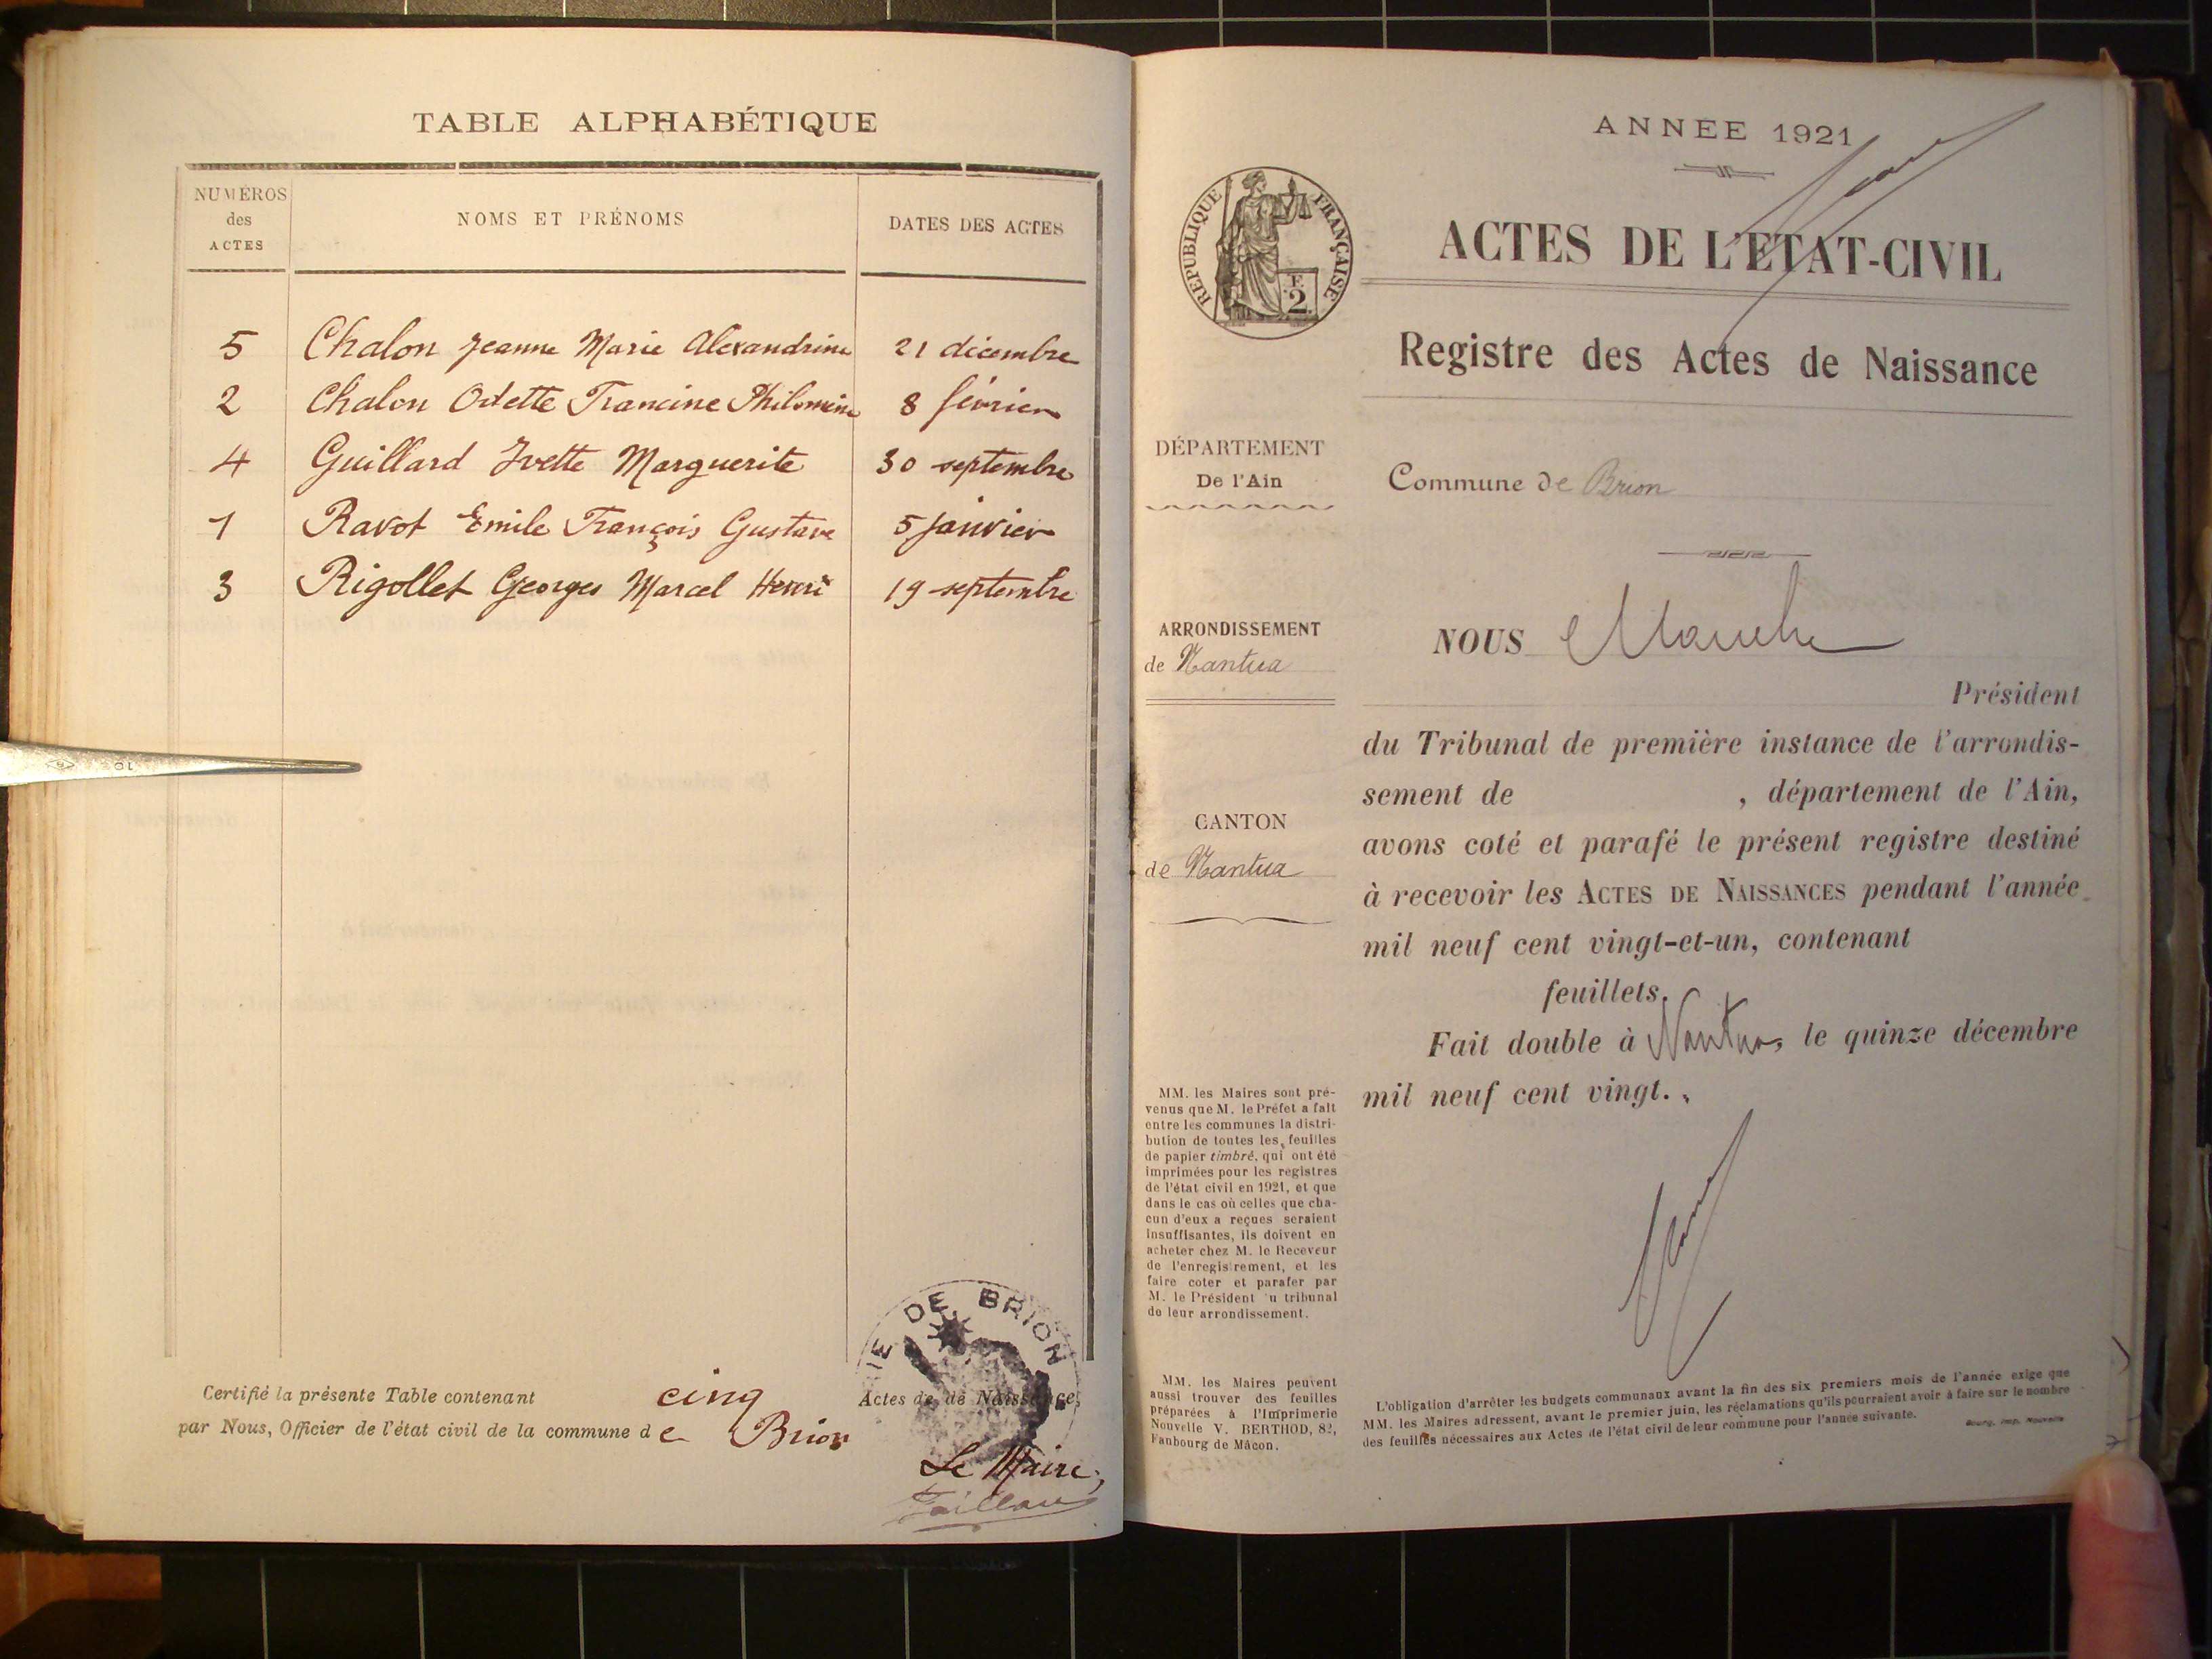 TABLE ALPHABÉTIQUE
NUMÉROS
des
ACTES
NOMS ET PRÉNOMS
DATES DES ACTES
5 Chalon Jeanne Marie Alexandrine 21 décembre
2 Chalon Odette Francine Philomène 8 février
4 Guillard Yvette Marguerite 30 septembre
1 Ravot Emile François Gustave 5 janvier
3 Rigollet Georges Marcel Henri 19 septembre
Certifié la présente Table contenant cinq Actes de de Naissance
par Nous, Officier de l'état civil de la commune de Brion
Le Maire,
DE BRION
ANNÉE 1921
RÉPUBLIQUE FRANÇAISE
F.
2
ACTES DE L'ÉTAT-CIVIL
Registre des Actes de Naissance
DÉPARTEMENT
De l'Ain
Commune de Brion
ARRONDISSEMENT
de Nantua
CANTON
de Nantua
NOUS
Président
du Tribunal de première instance de l'arrondis-
sement de , département de l'Ain,
avons coté et parafé le présent registre destiné
à recevoir les ACTES DE NAISSANCES pendant l'année
mil neuf cent vingt-et-un, contenant
feuillets.
Fait double à Nantua, le quinze décembre
mil neuf cent vingt.
MM. les Maires sont pré-
venus que M. le Préfet a fait
entre les communes la distri-
bution de toutes les feuilles
de papier timbré, qui ont été
imprimées pour les registres
de l'état civil en 1921, et que
dans le cas où celles que cha-
cun d'eux a reçues seraient
insuffisantes, ils doivent en
acheter chez M. le Receveur
de l'enregistrement, et les
faire coter et parafer par
M. le Président u tribunal
de leur arrondissement.
MM. les Maires peuvent
aussi trouver des feuilles
préparées à l'Imprimerie
Nouvelle V. BERTHOD, 82,
Faubourg de Mâcon.
L'obligation d'arrêter les budgets communaux avant la fin des six premiers mois de l'année exige que
MM. les Maires adressent, avant le premier juin, les réclamations qu'ils pourraient avoir à faire sur le nombre
des feuilles nécessaires aux Actes de l'état civil de leur commune pour l'année suivante.
Bourg, Imp. Nouvelle